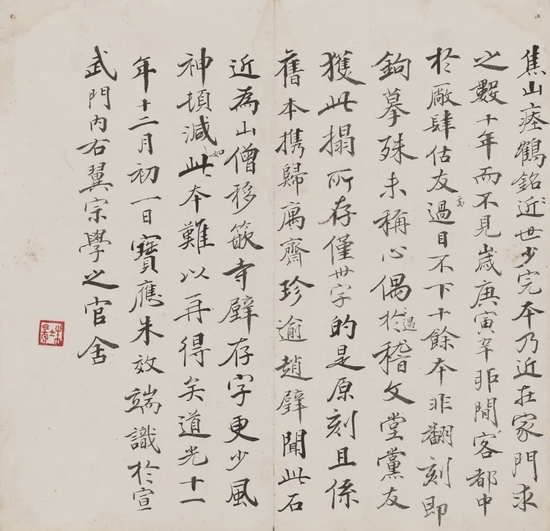 焦山瘞鶴銘近世少完本乃近在家門求
之數十年而不見歲庚寅辛卯間客都中
於廠肆估友過目不下十餘本非翻刻即
鉤摹殊未稱心偶於過稽文堂黨友
獲此搨所存僅卅字的是原刻且係
舊本携歸寓齋珍逾趙璧聞此石
近為山僧移嵌寺壁存字更少風
神頓減如此本難以再得矣道光十一
年十二月初一日寶應朱效端識於宣
武門內右翼宗學之官舍